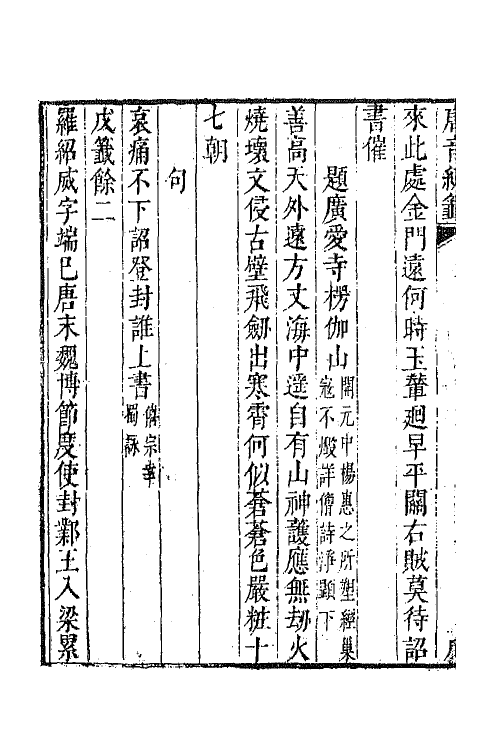 唐音統籤
來此處金門遠何時玉輦廻早平關右賊莫待詔
書催
題廣愛寺楞伽山開元中楊惠之所塑經巢
寇不燬詳僧詩淨顯下
善高天外遠方丈海中遥自有山神護應無劫火
燒壞文侵古壁飛劒出寒霄何似蒼蒼色嚴粧十
七朝
句
哀痛不下詔登封誰上書僖宗幸
蜀詠
戊籤餘二
羅紹威字端巳唐末魏博節度使封鄴王入梁累